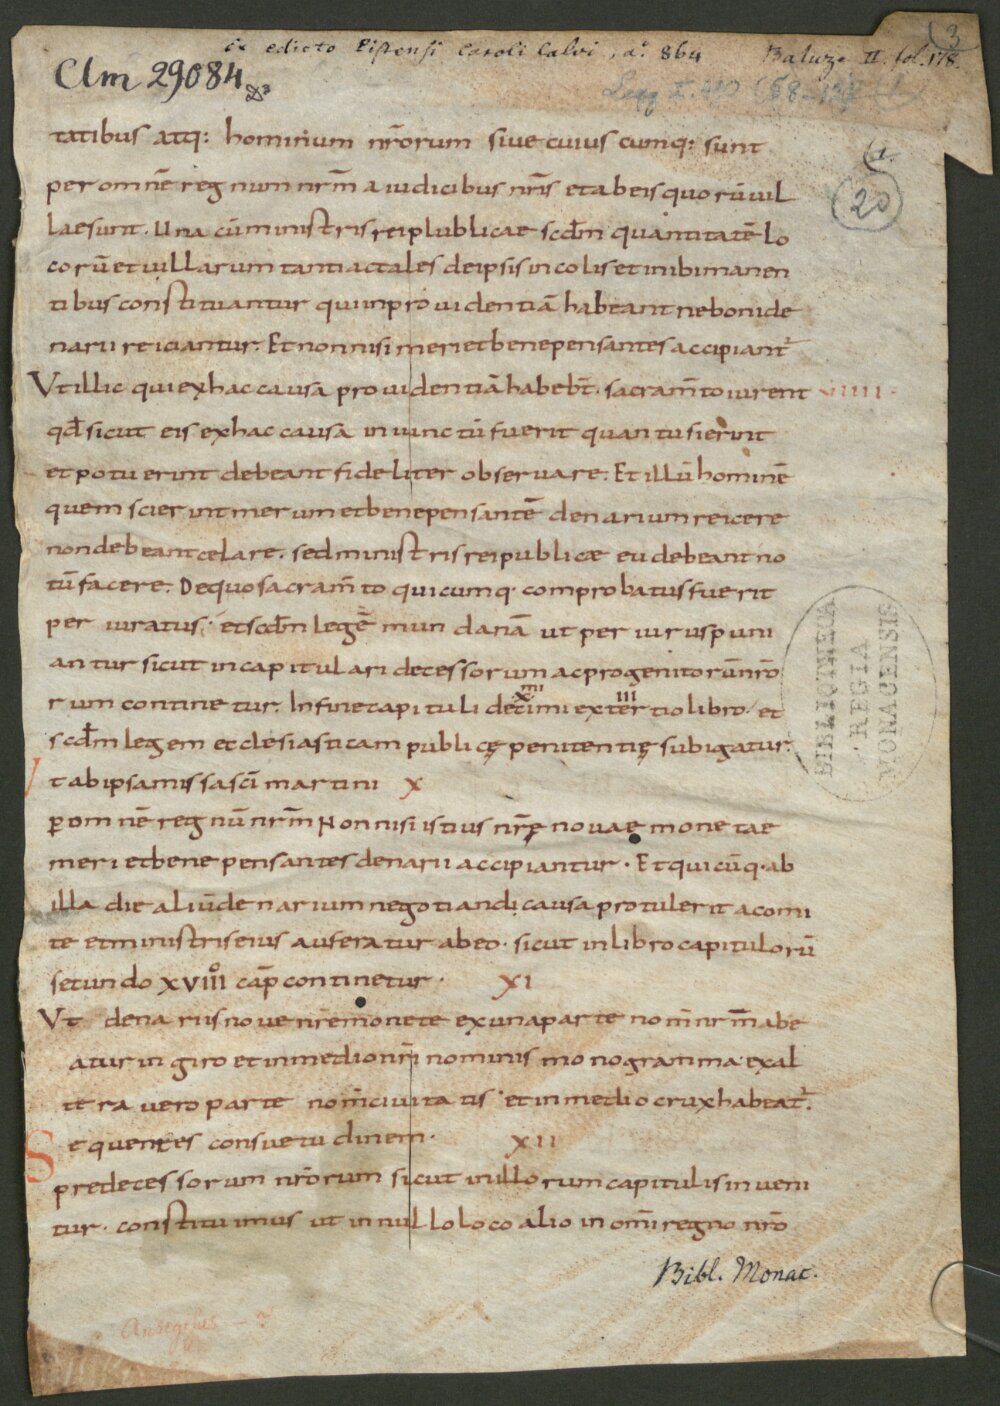 ex edicto Pistensi Caroli Calvi, aº. 864 Baluze II. fol. 178.
3
Clm 29084
1.
20
tatibus atq: hominum nr̄orum siue cuius cumq: sunt
per omnē regnum nrm̄ a iudicibus nrīs et ab eis quorū uil
lae sunt. Una cū ministris rei plublicae scdm̄ quantitatē lo
corū et uillarum tanti actales de ipsis incolis et inibi manen
tibus constituantur qui inprouidentiā habeant ne boni de
narii reiciantur. Et non nisi meri et bene pensantes accipiant̄
Ut illic qui ex hac causa prouidentiā habebt̄. sacram̄to iurent VIIII.
qd̄ sicut eis ex hac causa iniunctū fuerit quantu sierint
et potuerint debeant fideliter obseruare. Et illū hominē
quem scierint merum et bene pensantē denarium reicere
non debeant celare. sed ministris rei publicæ eu debeant no
tū facere. De quo sacram̄to quicumq· comprobatus fuerit
periuratus. et scdm̄ legē mundanā ut periurus puni
antur sicut in capitulari decessorum ac progenitorū nr̄o
rum continetur. In fine capituli decimi ex tertio libro. et
XIII III
scdm̄ legem ecclesiasticam publicę penitentię subigatur.
Ut ab ipsa missa sc̄i martini X
ꝑ omnē regnū nrm̄ Non nisi istius nrę̄ nouae monetae
meri et bene pensantes denarii accipiantur. Et quicūq· ab
illa die aliū denarium negotiandi causa protulerit a comi
te et ministris eius auferatur ab eo. sicut in libro capitulorū
setundo XVIIIº cap̄ continetur. XI
Ut denariis noue nrē monete ex una parte nom̄ nrm̄ abe
atur in giro et in medio nrī nominis monogramma. ex al
tera uero parte nom̄ ciuitatis et in medio crux habeat̄.
Sequentes consuetudinem. XII
predecessorum nr̄orum sicut in illorum capitulis inueni
tur. constituimus ut in nullo loco alio in omī regno nrō
BIBLIOTHECA
REGIA
MONACENSIS
Bibl. Monac.